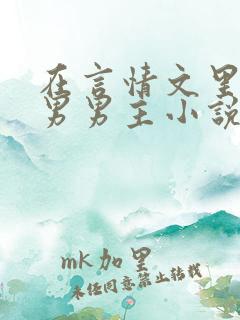 在言情文里
男男主小说
mk加里
未经同意禁止转载